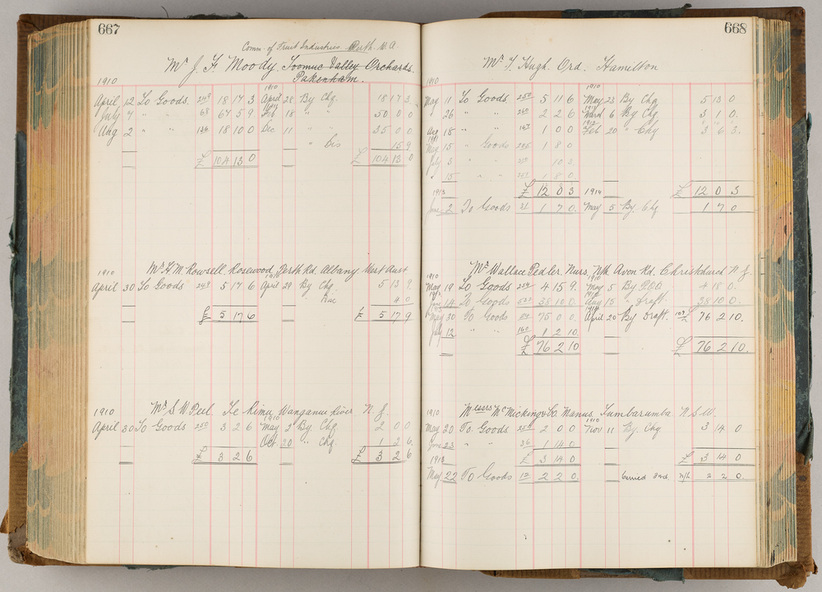 667
Comn. of Fruit Industries Perth W.A
Mr J. F. Moody. Toomuc Valley Orchards.
Pakenham.
1910
April 12 To Goods 18 17 3 April 28 By Chq. 18 17 3
July 7 " " 67 5 9 Feb 18 " " 50 0 0
Aug 2 " " 18 10 0 Dec 11 " " 35 0 0
" Dis 15 9
£ 104 13 0 £ 104 13 0
1910 Mr H. M. Rowsell Rosewood Perth Rd. Albany West Aust
April 30 To Goods 5 17 6 April 28 By Chq. 5 13 9
4 0
£ 5 17 6 £ 5 17 9
1910 Mr S. W. Peel Te Rimu Wanganui River N. Z.
April 30 To Goods 3 2 6 May 3 By Chq 2 0 0
Oct 20 " Chq. 1 2 6
£ 3 2 6 £ 3 2 6
668
Mr T. Hugh Ord. Hamilton
1910
May 11 To Goods 5 11 6 May 23 By Chq 5 13 0
26 " " 2 2 6 6 By Chq 3 1 0
18 " " 1 0 0 Feb 20 " Chq 3 6 3
15 " Goods 1 8 0
3 " " 10 3
15 " " 1 8 0
£ 12 0 3 £ 12 0 3
1913 1914
June 2 To Goods 1 7 0 May 5 By Chq 1 7 0
Mr Wallace Pedler Nurs. Nth Avon Rd. Christchurch N. Z.
1910
May 19 To Goods 4 15 9 May 5 By 4 15 0
14 To Goods 38 10 0 Aug 15 " Draft. 38 10 0
May 30 To Goods 75 0 0 April 20 By Draft. 76 2 10
July 12 " " 1 2 10
£ 76 2 10 £ 76 2 10
1910 Messrs McMicking & Co. Manus Tumbarumba N. S. W.
May 20 To Goods 2 0 0 Nov 11 By Chq 3 14 0
June 23 " " 1 14 0
£ 3 14 0 £ 3 14 0
May 22 To Goods 2 2 0 2 2 0